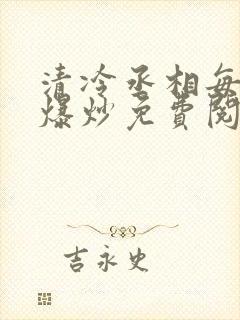 清冷丞相每
爆炒免费阅
吉永史